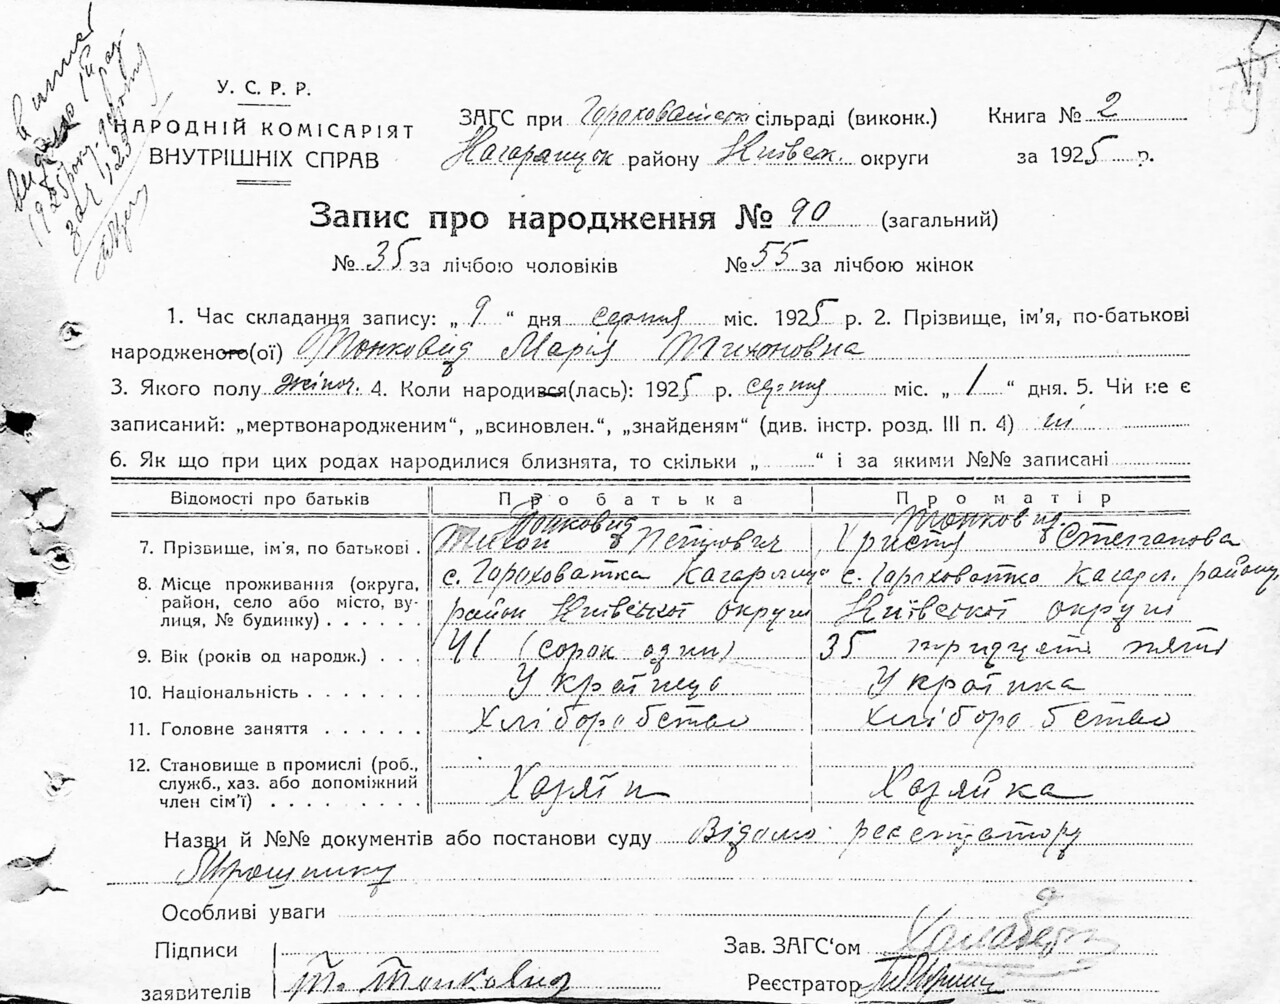 У. С. Р. Р.
НАРОДНІЙ КОМІСАРІЯТ
ВНУТРІШНІХ СПРАВ
ЗАГС при Гороховатськ сільраді (виконк.)
Кагарлицьк району Київськ. округи
Книга № 2
за 1925 р.
Запис про народження № 90 (загальний)
№ 35 за лічбою чоловіків № 55 за лічбою жінок
1. Час складання запису: „ 9 “ дня серпня міс. 1925 р. 2. Прізвище, ім'я, по-батькові
народженого(ої) Тонковид Марія Тихоновна
3. Якого полу жіноч. 4. Коли народився(лась): 1925 р. серпня міс. „ 1 “ дня. 5. Чи не є
записаний: „мертвонародженим“, „всиновлен.“, „знайденям“ (див. інстр. розд. III п. 4) ні
6. Як що при цих родах народилися близнята, то скільки „ “ і за якими №№ записані
Відомості про батьків Про батька Про матір
7. Прізвище, ім'я, по батькові . Тонковид Тихон Петрович Тонковид Христя Степанова
8. Місце проживання (округа, с. Гороховатка Кагарлиц с. Гороховатка Кагарл. району
район, село або місто, ву- район Київської округи Київської округи
лиця, № будинку) . . . . . .
9. Вік (років од народж.) . . . 41 (сорок один) 35 тридцять пять
10. Національність . . . . . . . Українец Українка
11. Головне заняття . . . . . . Хліборобство Хліборобство
12. Становище в промислі (роб.,
служб., хаз. або допоміжний Хазяїн Хазяйка
член сім'ї) . . . . . . . . .
Назви й №№ документів або постанови суду Відомо реєстратору
Мірошнику
Особливі уваги
Підписи
заявителів Т. Тонковид
Зав. ЗАГС'ом
Реєстратор